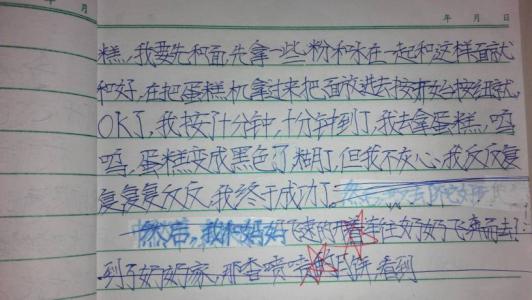 年 月
年 月 日
糕，我要先和面，先拿一些粉和水在一起和这样面就
和好，在把蛋糕机拿过来把面放进去按开始按纽就，
OK了，我按了十分钟，十分钟到了，我去拿蛋糕，呜
呜，蛋糕变成黑色了糊了，但我不灰心，我反反复
复复复反反，我终于成功了，
然后，我和妈妈飞奔的 往奶奶 飞奔而去！
到了奶奶家，那香喷喷的 饼 看到